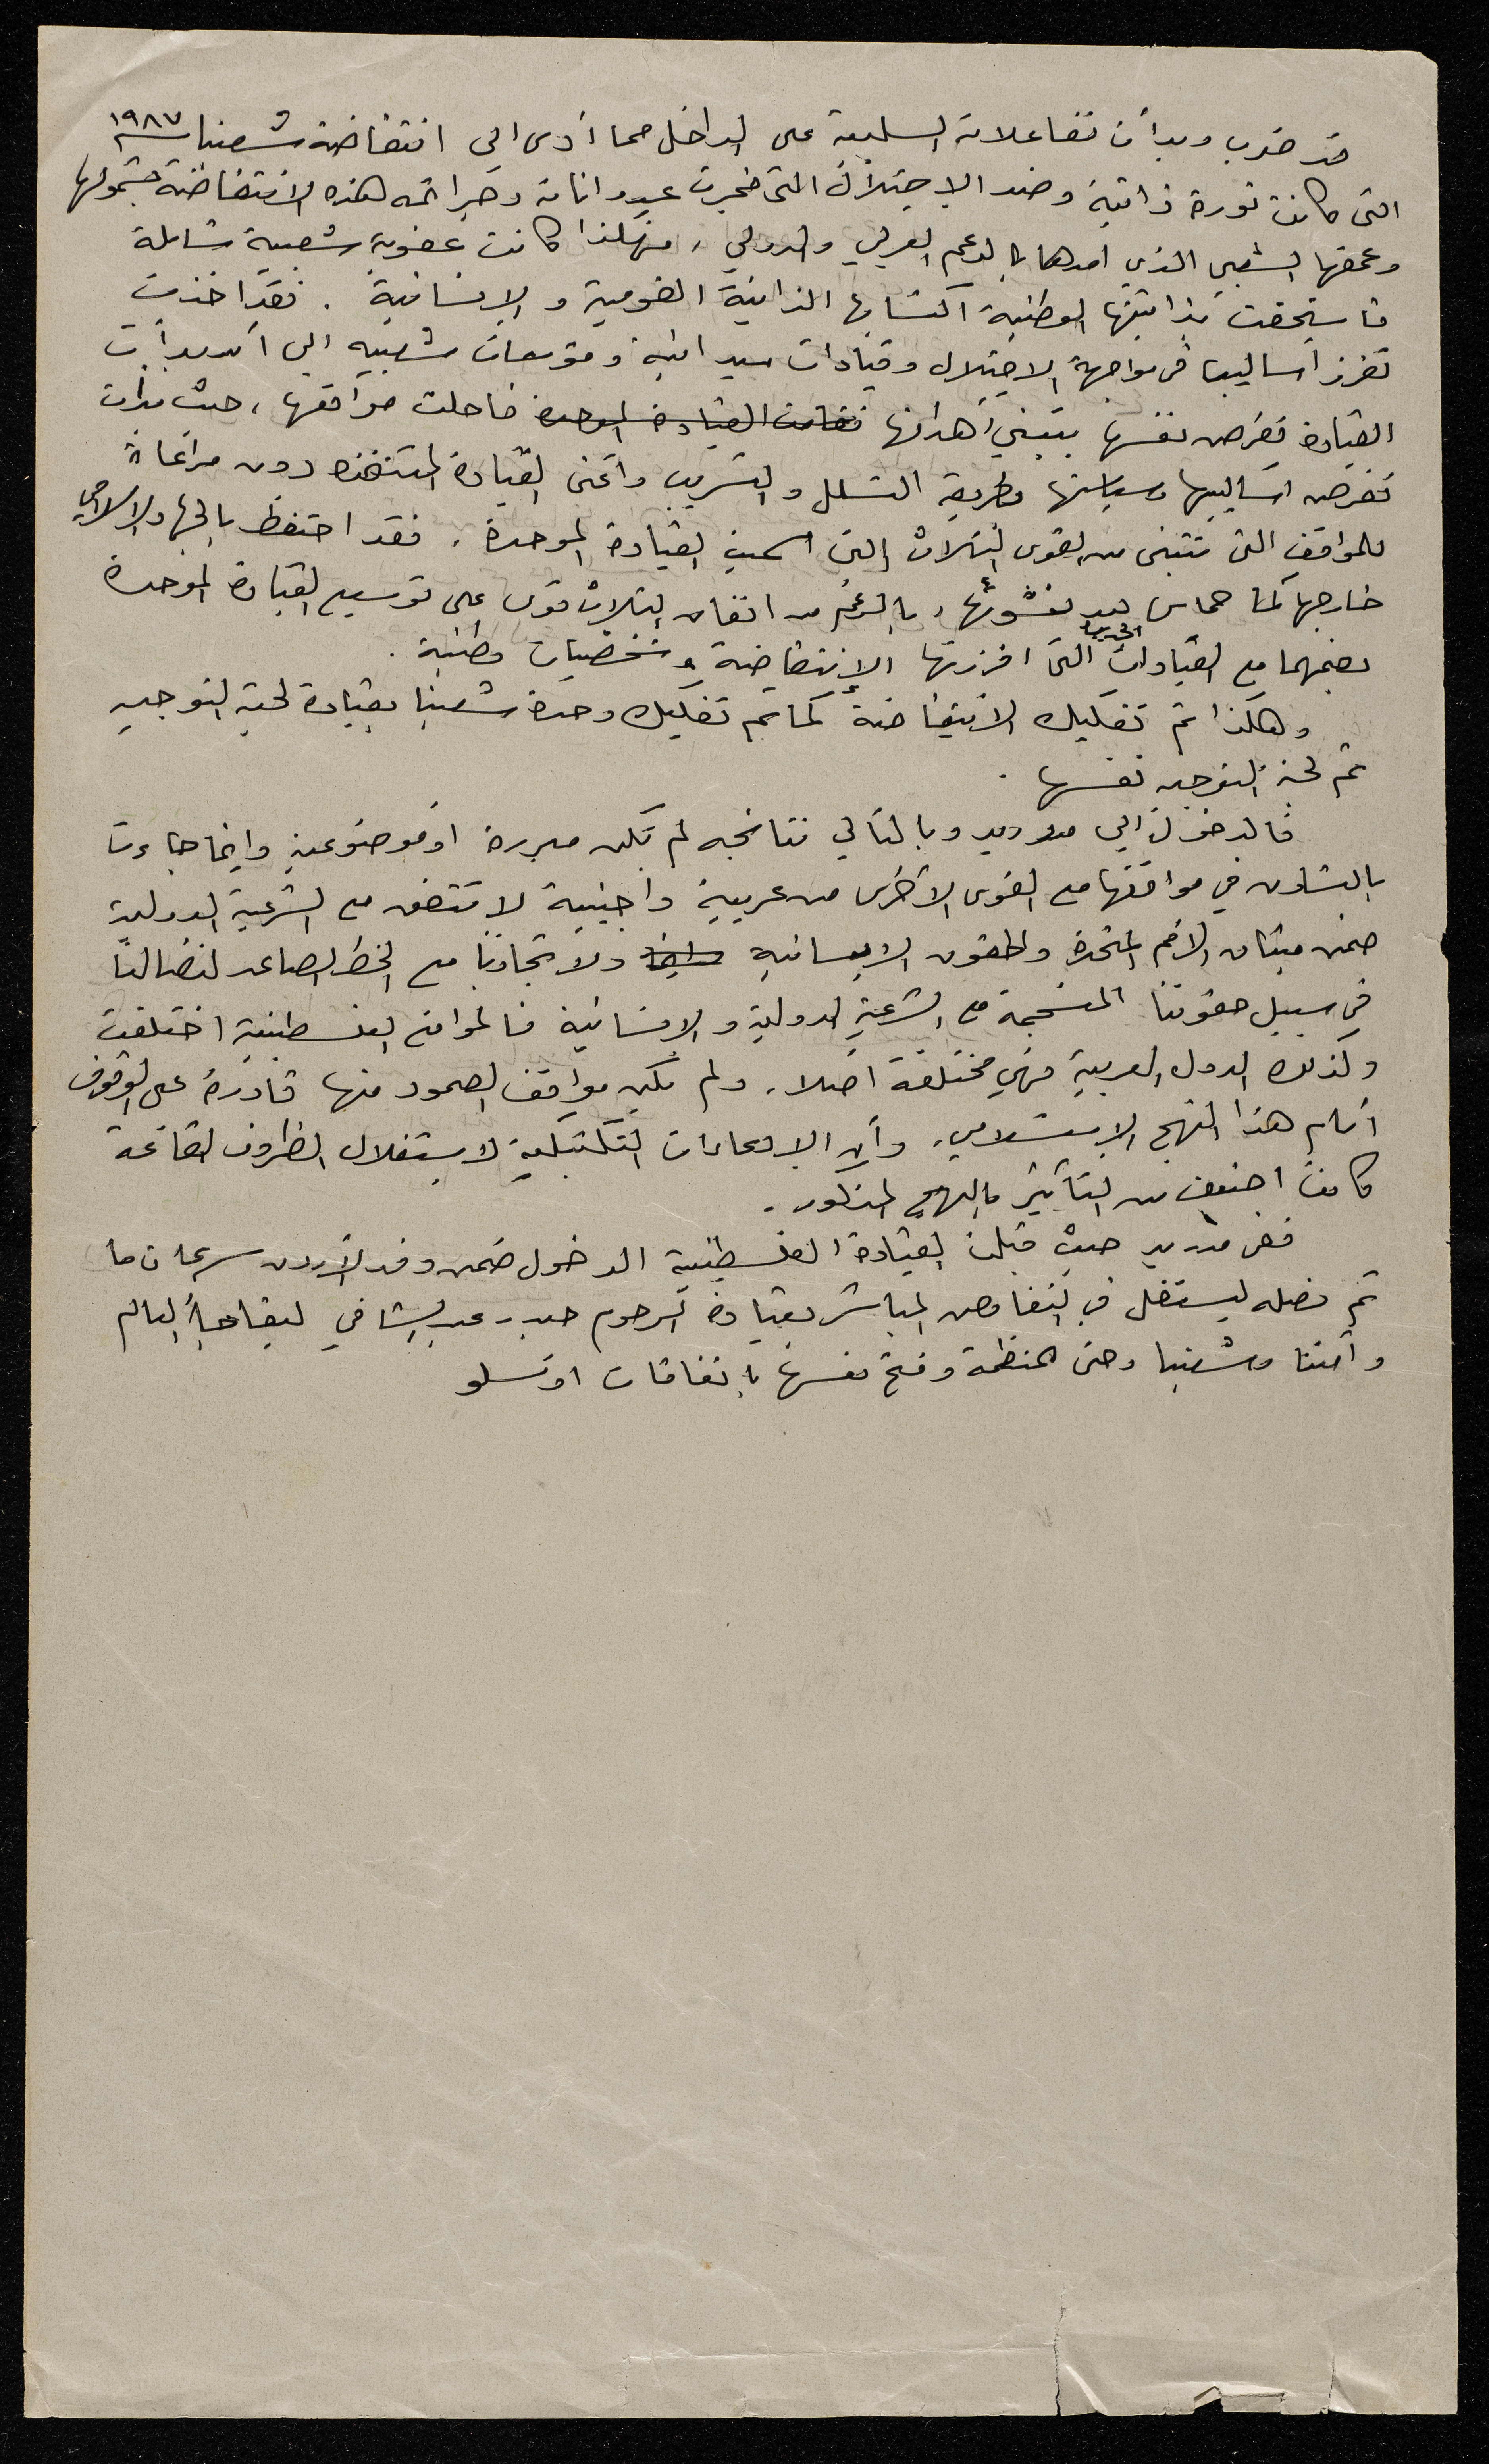 قد ضرب وبدأت تفاعلاته السلبية على الداخل مما أدى الى انتفاضة شعبنا سنة ١٩٨٧
التي كانت ثورة ذاتية وضد الاحتلال التي فجرت عدواناته وجرائمه هذه الانتفاضة بشمولها
وعمقها الشعبي الذي امدها بالدعم العربي والدولي، فهكذا كانت عفوية شعبية شاملة
فاستحقت بذاتيتها الوطنية اكتسابها الذاتية القومية والانسانية. فقد اخذت
تفرز أساليبها في مواجهة الاحتلال وقيادات ميدانية وموسعات شعبية الى أن بدأت
القيادة تفرض نفسها بتبني أهدافها فقامت القيادة الموحدة فاحلت مواقعها، حيث بدأت
تفرض اساليبها وسياستها بطريقة التسلل والتسريب وأعني القيادة المتنفذة دون مراعاة
للمواقف التي تتبنى من القوى الثلاث التي اسميت القيادة الموحدة. فقد احتفظ بالجهاد الاسلامي
خارجها كما حماس بعد نشوئها، بالرغم من اتفاق الثلاث قوى على توسيع القيادة الموحدة
بضمهما مع القيادات التي افرزتها الانتفاضة وشخصيات وطنية.
وهكذا تم تفكيك الانتفاضة كما تم تفكيك وحدة شعبنا بقيادة لجنة التوجيه
ثم لجنة التوجيه نفسها.
فالدخول الى مدريد وبالتالي نتائجه لم تكن مبررة او موضوعية وانما جاءت
بالتساوق في مواقفها مع القوى الاخرى من عربية واجنبية لا تتفق مع الشرعية الدولية
ضمن ميثاق الامم المتحدة والحقوق الانسانية ولا تجاوبا مع الخط الصاعد لنضالنا
في سبيل حقوقنا المنسجمة مع الشرعية الدولية والانسانية فالمواقع الفلسطينية اختلفت
وكذلك الدول العربية فهي مختلفة أصلا، ولم تكن مواقف الصمود منها قادرة على الوقوف
أمام هذا النهج الاستسلامي، وأن الادعاءات التكتيكية لاستغلال الظروف القائمة
كانت اضعف من التأثير بالنهج المذكور.
ففي مدريد حيث قبلت القيادة الفلسطينية الدخول ضمن وفد الاردن سرعان ما
تم فصله ليستقل في التفاوض المباشر بقيادة المرحوم حيدر عبد الشافي ليفاجأ العالم
وأمتنا وشعبنا وحتى المنظمة وفتح نفسها باتفاقات اوسلو